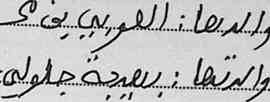 والدها : العربي
والدتها : بهيجة جلولي